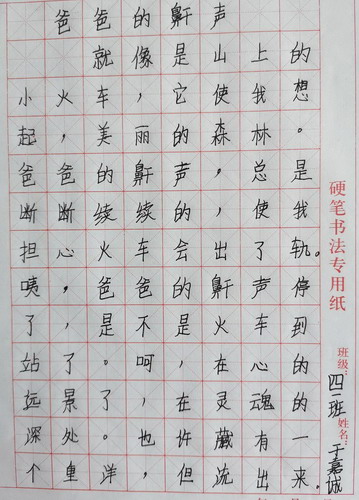 爸爸的鼾声
就像是山上的
小火车，它使我想
起，美丽的森林。
爸爸的鼾声，总是
断断续续的，使我
担心火车会出了轨。
咦，爸爸的鼾声停
了，是不是火车到
站了。呵，在心的
远景了，在灵魂的
深处。也许藏有一
个重洋，但流出来。
硬笔书法专用纸
班级：四二班 姓名：于嘉诚